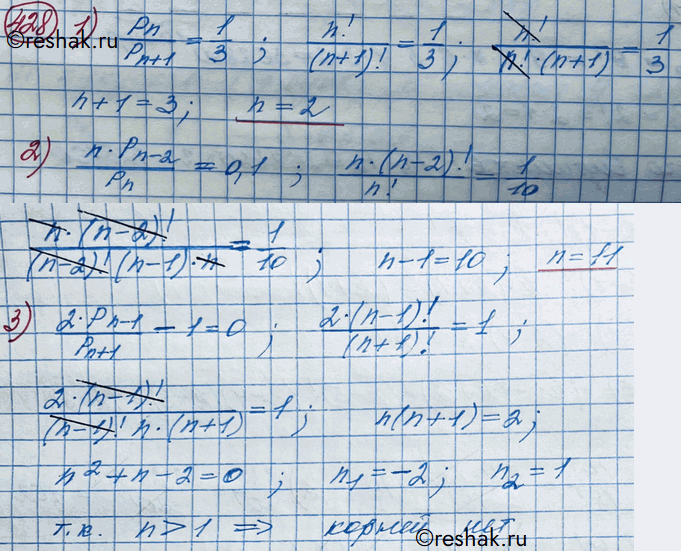 428 1) Pn/Pn+1 = 1/3 ; n!/(n+1)! = 1/3 ; n!/(n!·(n+1)) = 1/3
©reshak.ru
n+1=3; n=2
2) n·Pn-2/Pn = 0,1 ; n·(n-2)!/n! = 1/10
n·(n-2)!/((n-2)!(n-1)·n) = 1/10 ; n-1=10 ; n=11
3) 2·Pn-1/Pn+1 - 1=0 ; 2·(n-1)!/(n+1)! = 1 ;
2·(n-1)!/((n-1)! n·(n+1)) = 1 ; n(n+1)=2;
n²+n-2=0 ; n1=-2; n2=1
т.к. n>1 => корней нет
©reshak.ru